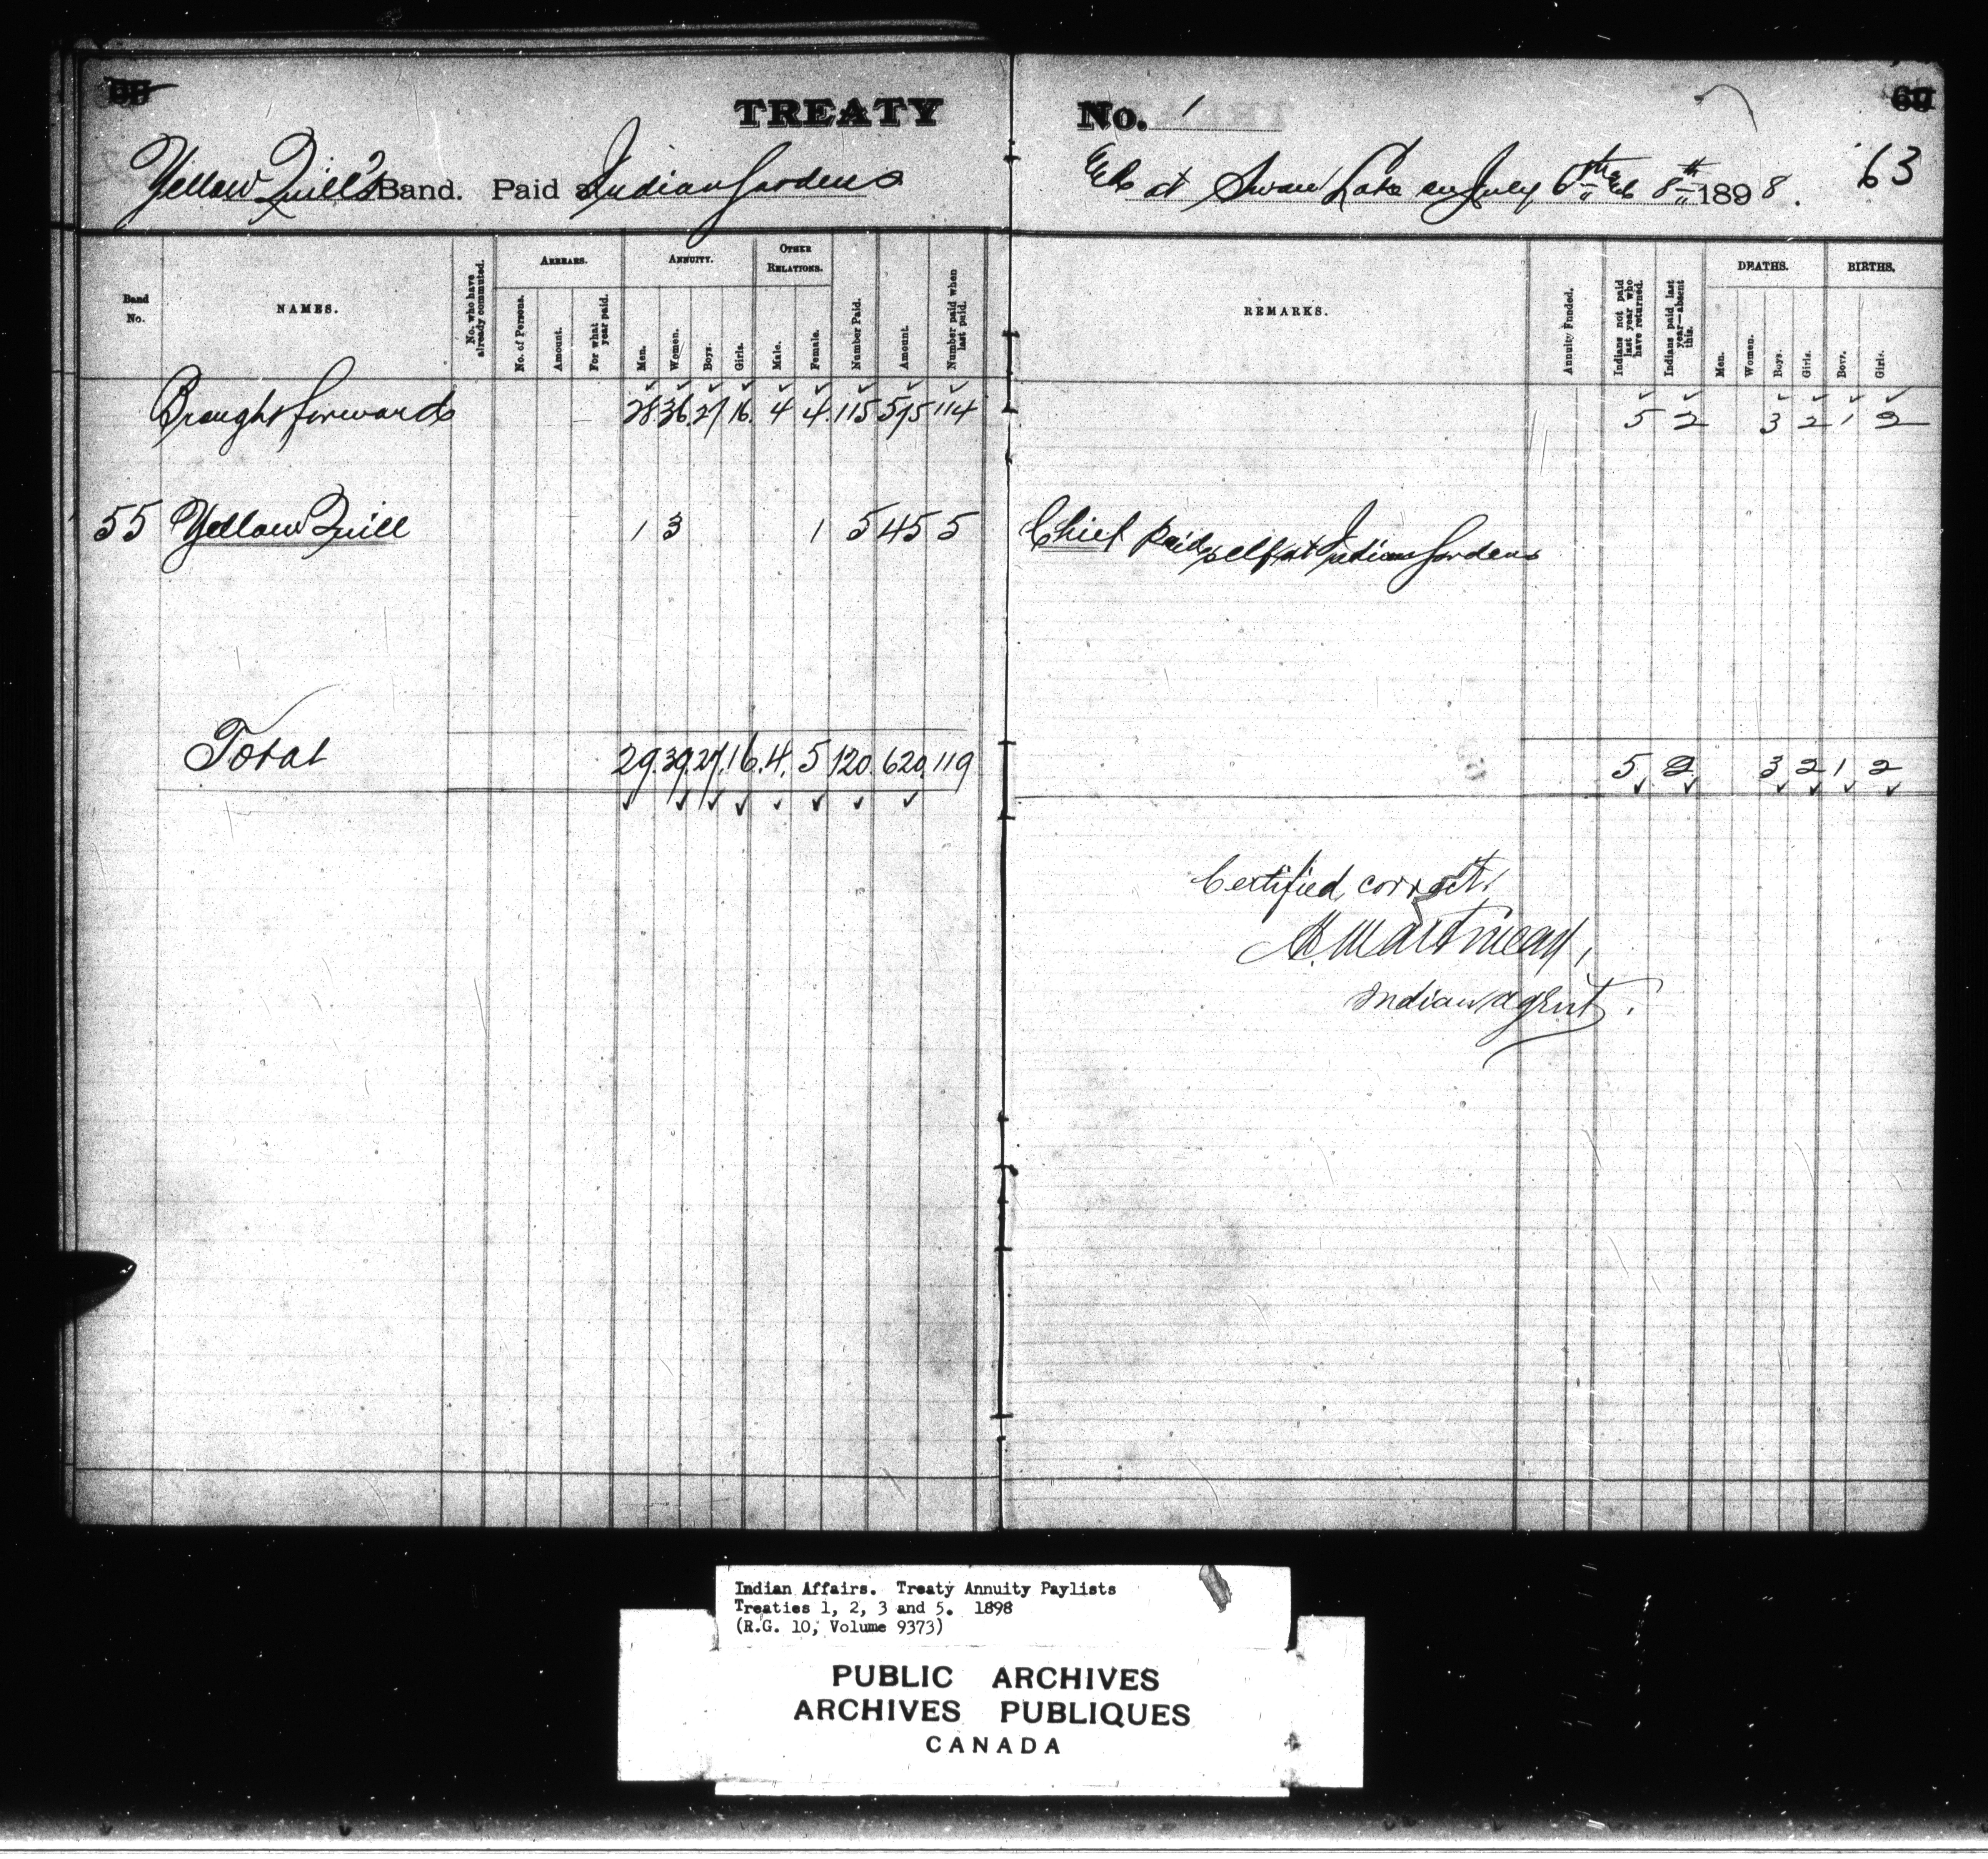 TREATY No. 1
Yellow Quill's Band. Paid at Indian Gardens & at Swan Lake on July 6th & 8th 1898. 63
Band No. NAMES. No. who have already commuted. ARREARS. No. of Persons. Amount. For what year paid. ANNUITY. Men. Women. Boys. Girls. OTHER RELATIONS. Male. Female. Number Paid. Amount. Number paid when last paid. REMARKS. Annuity Funded. Indians not paid last year who have returned. Indians paid last year—absent this. DEATHS. Men. Women. Boys. Girls. BIRTHS. Boys. Girls.
Brought forward 28. 36. 27 16. 4 4. 115 575 114 5 2 3 2 1 2
55 Yellow Quill 1 3 1 5 45 5 Chief Paid self at Indian Gardens
Total 29. 39. 27. 16. 4. 5 120. 620. 119 5, 2, 3 2 1, 2
Certified correct,
Martineau,
Indian agent.
Indian Affairs. Treaty Annuity Paylists
Treaties 1, 2, 3 and 5. 1898
(R.G. 10, Volume 9373)
PUBLIC ARCHIVES
ARCHIVES PUBLIQUES
CANADA